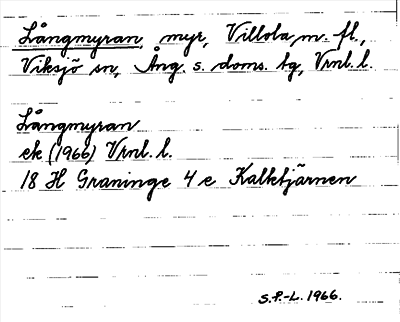 Långmyran, myr, Villola, m. fl.,
Viksjö sn, Ång. s. doms. tg, Vrnl. l.
Långmyran
ek (1966) Vrnl. l.
18 H Graninge 4 e Kalktjärnen
S.P.-L. 1966.